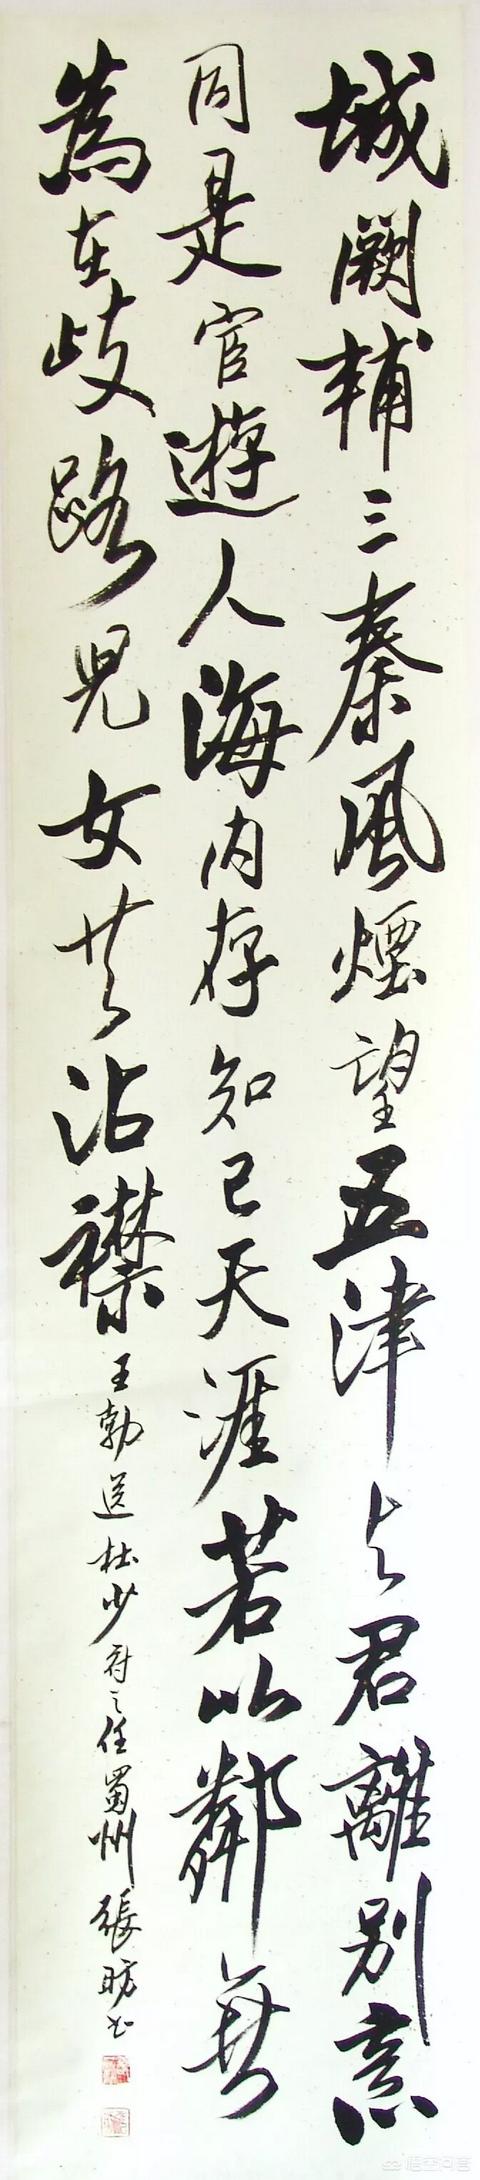 城闕輔三秦風煙望五津与君離别意
同是宦遊人海内存知己天涯若比鄰無
為在歧路兒女共沾襟王勃送杜少府之任蜀州張昉书
悟空问答